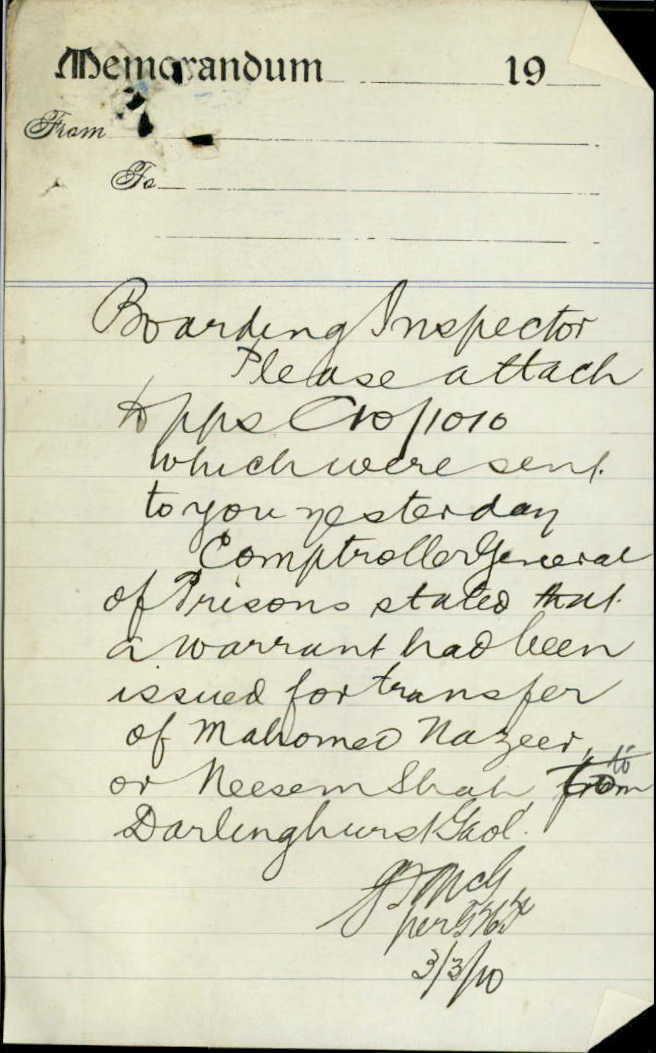 Memorandum 19
From
To
Boarding Inspector
Please attach
to pps C10/1010
which were sent
to you yesterday
Comptroller General
of Prisons stated that
a warrant had been
issued for transfer
of Mahomed Nazeer,
or Neesem Shah, to
Darlinghurst Gaol.
per
3/3/10